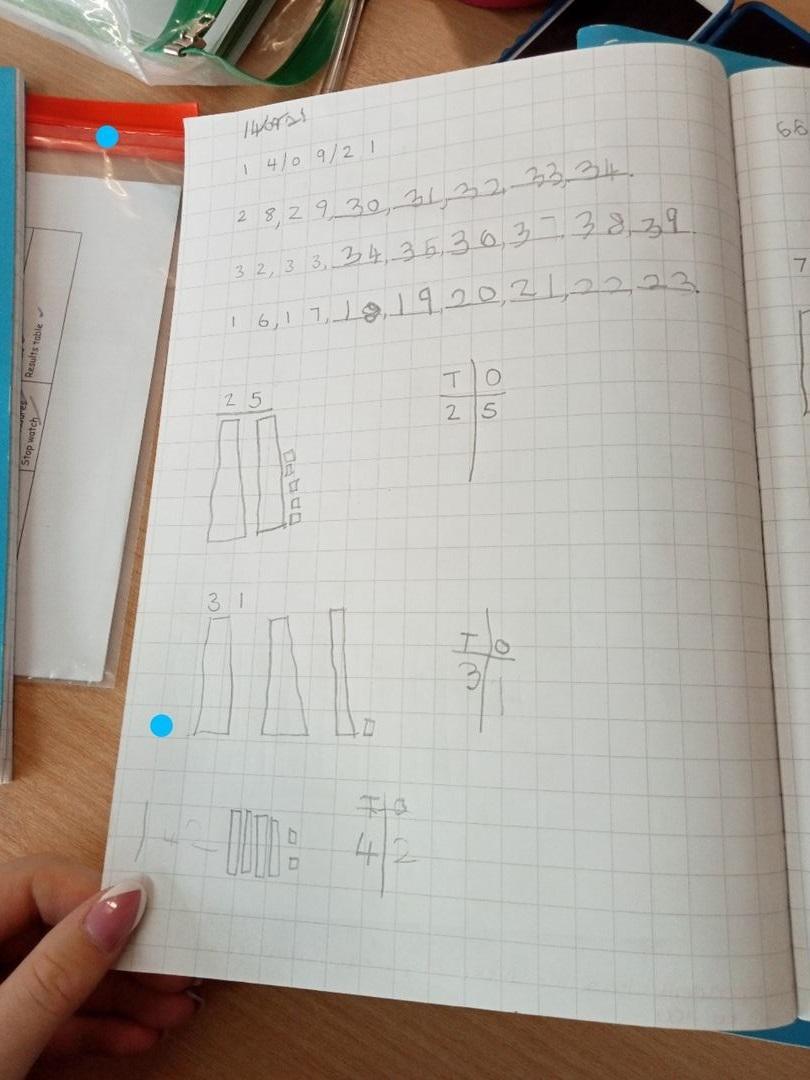 1 4/0 9/2 1
2 8, 2 9, 30, 31, 32, 33, 34.
3 2, 3 3, 34, 35, 36, 37, 38, 39
1 6, 1 7, 18, 19, 20, 21, 22, 23.
2 5
T O
2 5
3 1
T O
3 1
T O
4 2
Results table
Stop watch
66
7